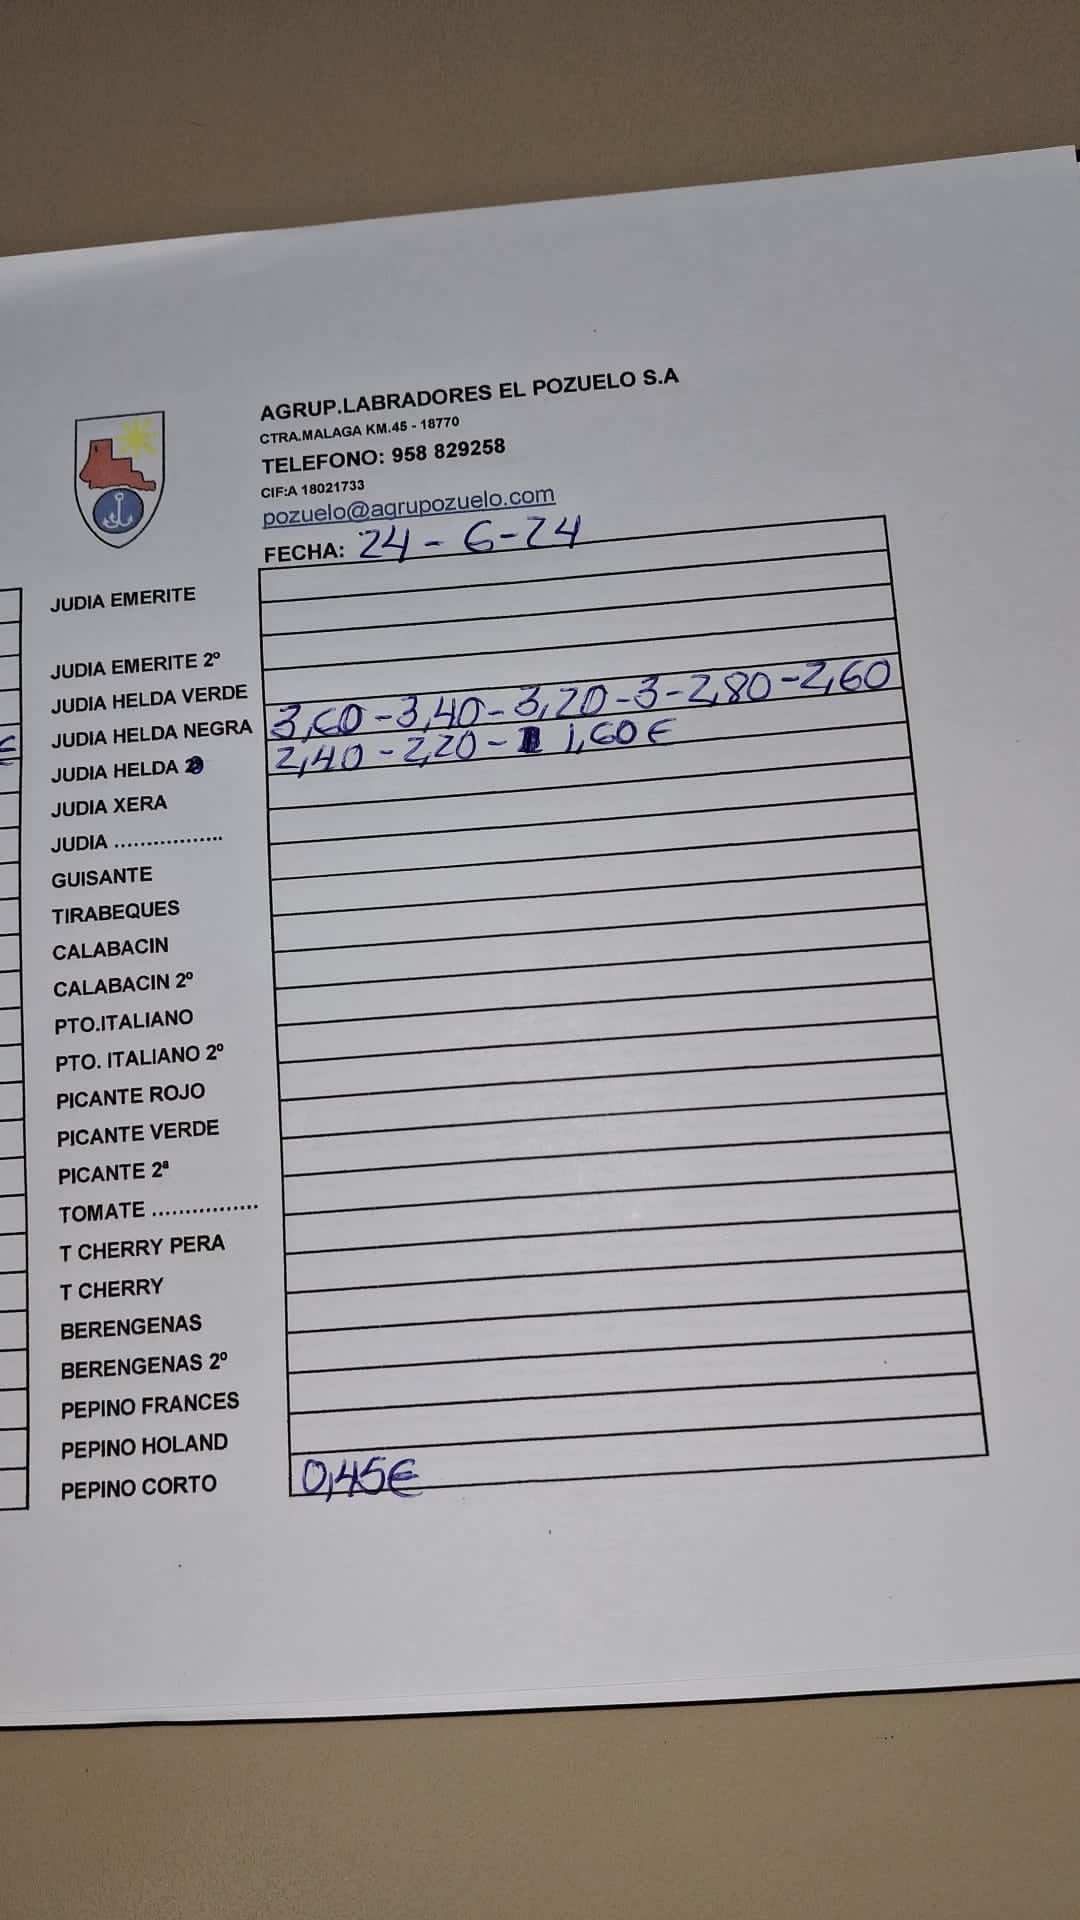 AGRUP.LABRADORES EL POZUELO S.A
CTRA.MALAGA KM.45 - 18770
TELEFONO: 958 829258
CIF:A 18021733
pozuelo@agrupozuelo.com
FECHA: 24-6-24
JUDIA EMERITE
JUDIA EMERITE 2º
JUDIA HELDA VERDE
JUDIA HELDA NEGRA 3,60-3,40-3,20-3-2,80-2,60
€ JUDIA HELDA 2,40-2,20- 1,60€
JUDIA XERA
JUDIA .................
GUISANTE
TIRABEQUES
CALABACIN
CALABACIN 2º
PTO.ITALIANO
PTO. ITALIANO 2º
PICANTE ROJO
PICANTE VERDE
PICANTE 2ª
TOMATE ................
T CHERRY PERA
T CHERRY
BERENGENAS
BERENGENAS 2º
PEPINO FRANCES
PEPINO HOLAND
PEPINO CORTO 0,45€